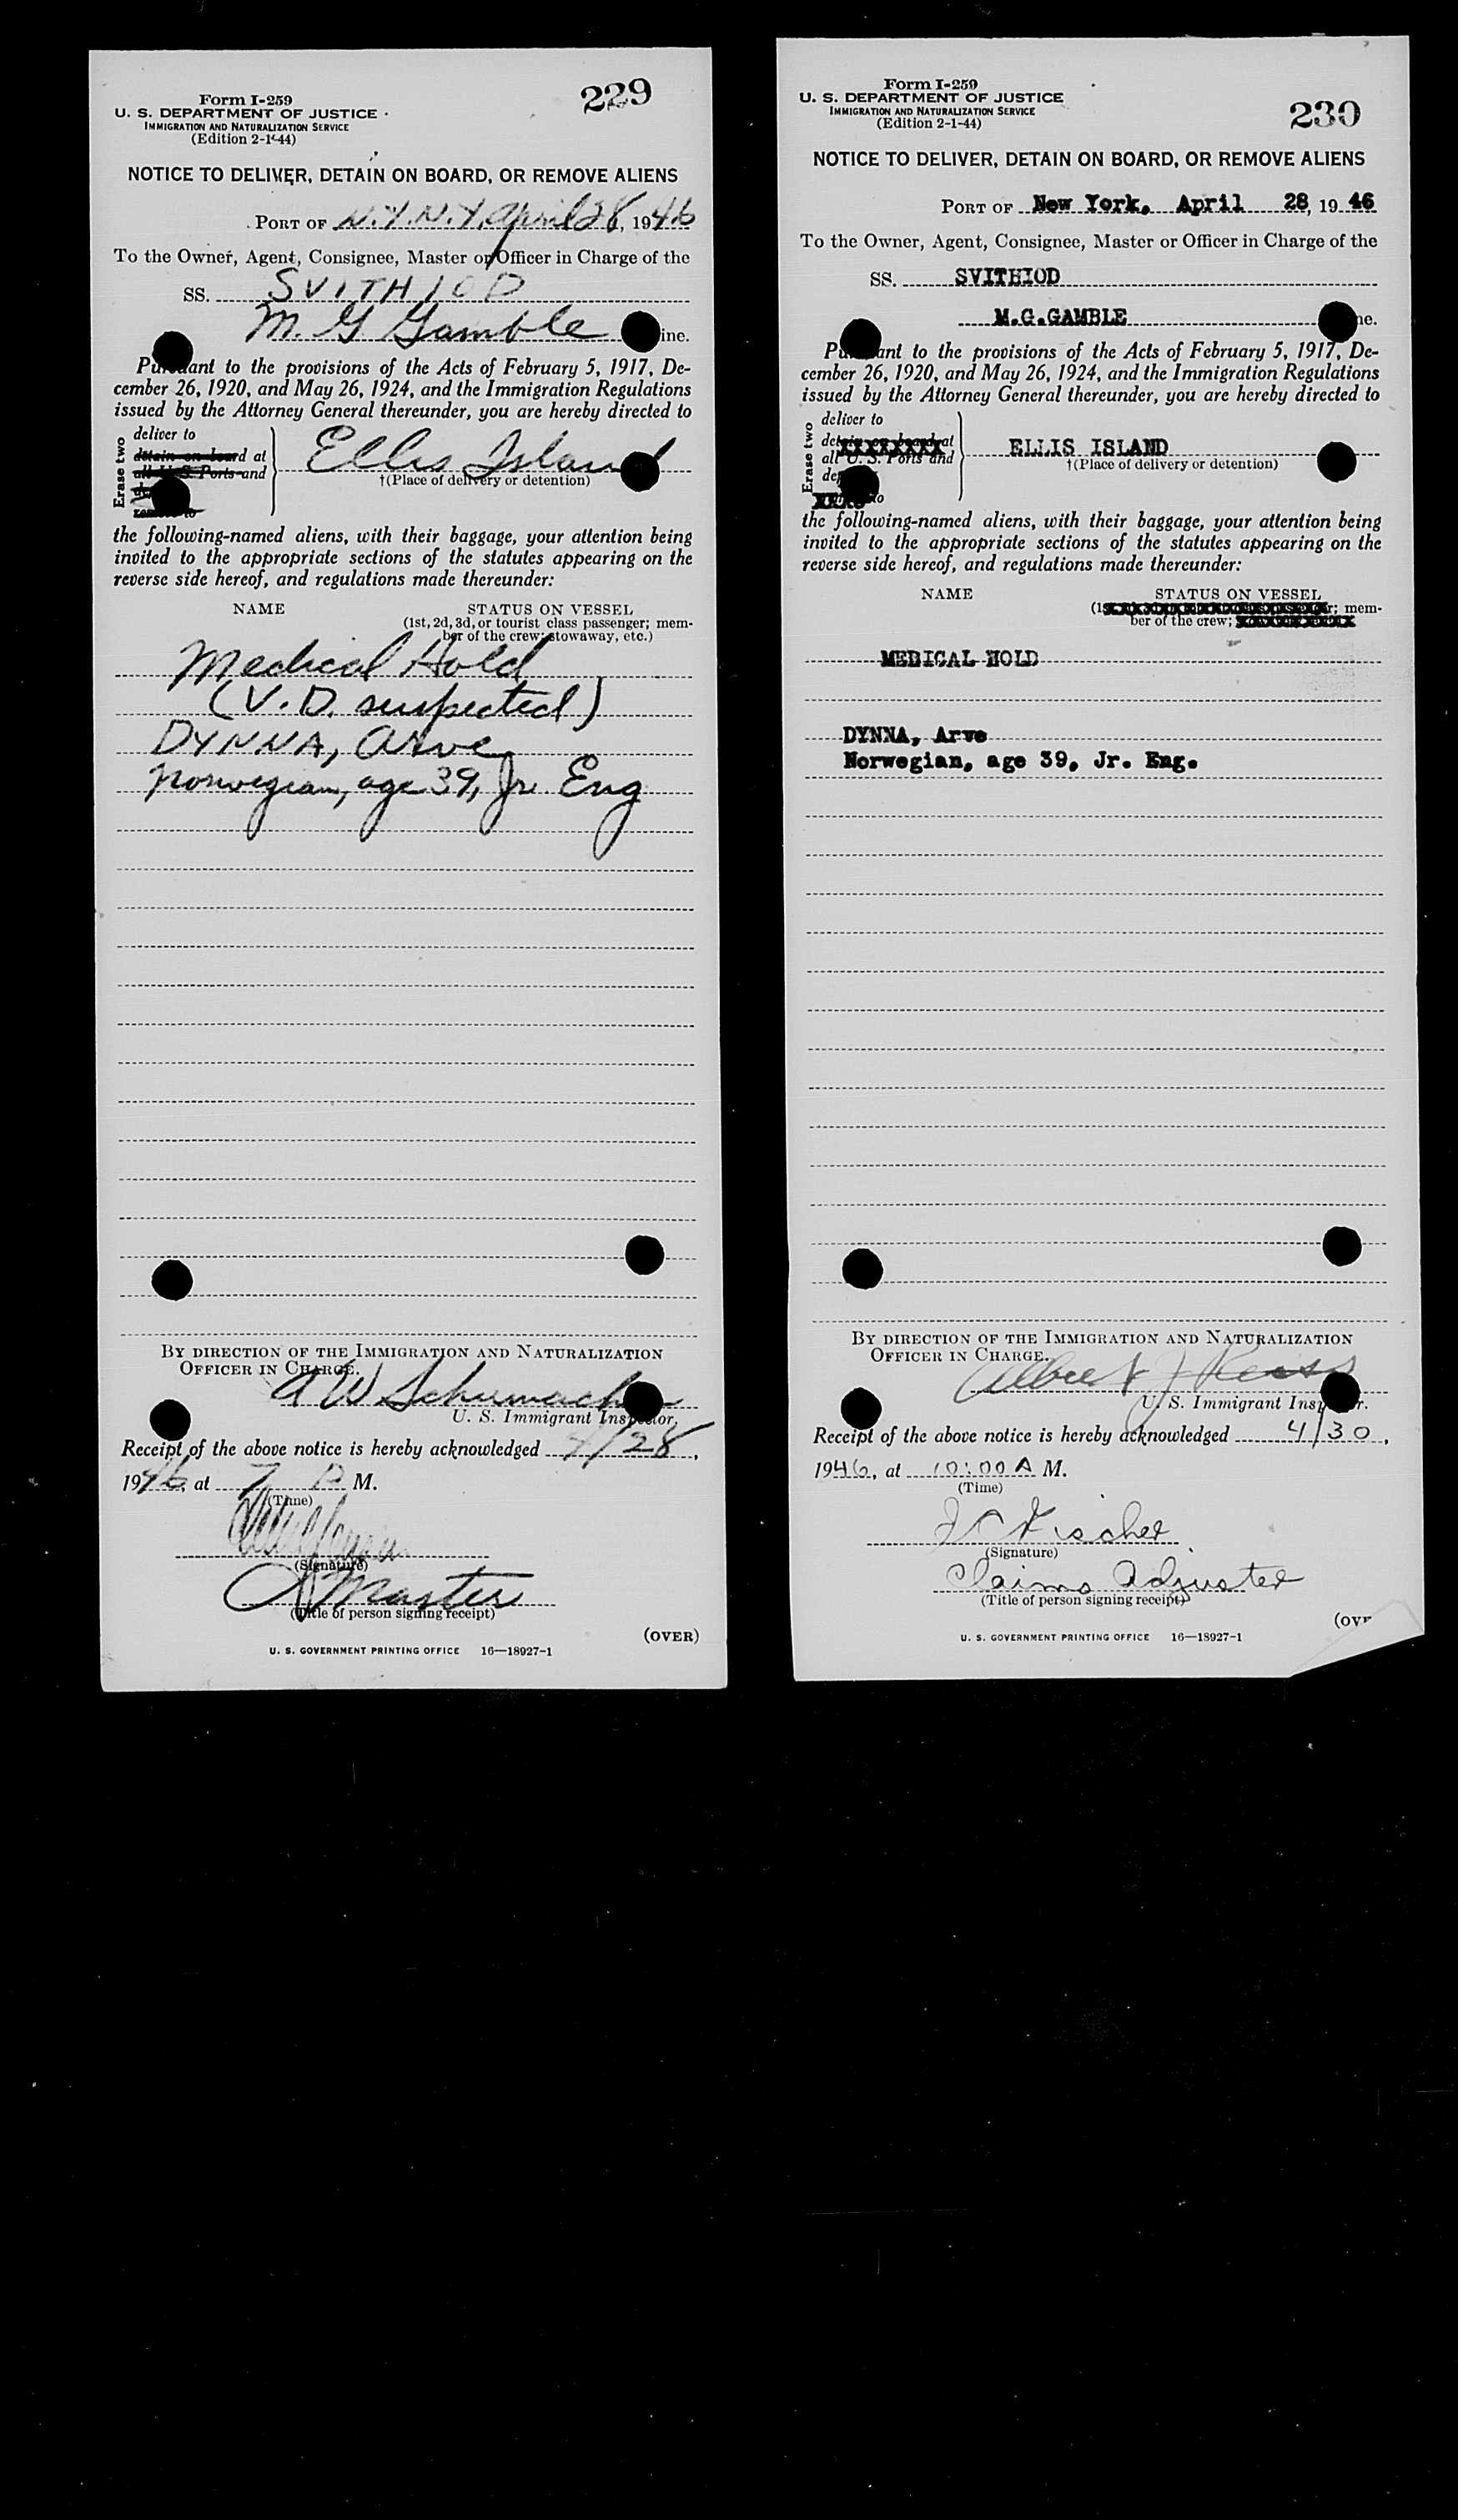 229
Form I-259
U. S. DEPARTMENT OF JUSTICE
IMMIGRATION AND NATURALIZATION SERVICE
(Edition 2-1-44)
NOTICE TO DELIVER, DETAIN ON BOARD, OR REMOVE ALIENS
PORT OF N.Y.N.Y. April 28, 1946
To the Owner, Agent, Consignee, Master or Officer in Charge of the
SS. SVITHIOD
M. G Gamble ine.
Pursuant to the provisions of the Acts of February 5, 1917, De-
cember 26, 1920, and May 26, 1924, and the Immigration Regulations
issued by the Attorney General thereunder, you are hereby directed to
Erase two
deliver to
detain on board at
all U. S. Ports and
remove to
Ellis Island
†(Place of delivery or detention)
the following-named aliens, with their baggage, your attention being
invited to the appropriate sections of the statutes appearing on the
reverse side hereof, and regulations made thereunder:
NAME STATUS ON VESSEL
(1st, 2d, 3d, or tourist class passenger; mem-
ber of the crew; stowaway, etc.)
Medical Hold
(V.D. suspected)
DYNNA, Arve
Norwegian, age 39, Jr. Eng
BY DIRECTION OF THE IMMIGRATION AND NATURALIZATION
OFFICER IN CHARGE.
A W Schumacher
U. S. Immigrant Inspector.
Receipt of the above notice is hereby acknowledged 4/28,
1946, at 7 P M.
(Time)
(Signature)
Master
(Title of person signing receipt)
(OVER)
U. S. GOVERNMENT PRINTING OFFICE 16—18927-1
Form I-259
U. S. DEPARTMENT OF JUSTICE
IMMIGRATION AND NATURALIZATION SERVICE
(Edition 2-1-44)
230
NOTICE TO DELIVER, DETAIN ON BOARD, OR REMOVE ALIENS
PORT OF New York, April 28, 19 46
To the Owner, Agent, Consignee, Master or Officer in Charge of the
SS. SVITHIOD
M.G.GAMBLE ne.
Pursuant to the provisions of the Acts of February 5, 1917, De-
cember 26, 1920, and May 26, 1924, and the Immigration Regulations
issued by the Attorney General thereunder, you are hereby directed to
Erase two
deliver to
detain on board at
all U. S. Ports and
de
to
ELLIS ISLAND
†(Place of delivery or detention)
the following-named aliens, with their baggage, your attention being
invited to the appropriate sections of the statutes appearing on the
reverse side hereof, and regulations made thereunder:
NAME STATUS ON VESSEL
(1s r; mem-
ber of the crew;
MEDICAL HOLD
DYNNA, Arve
Norwegian, age 39, Jr. Eng.
BY DIRECTION OF THE IMMIGRATION AND NATURALIZATION
OFFICER IN CHARGE.
Albert J Reiss
U. S. Immigrant Inspector.
Receipt of the above notice is hereby acknowledged 4/30,
1946, at 10:00 A M.
(Time)
Fischer
(Signature)
Claims Adjuster
(Title of person signing receipt)
(OVE
U. S. GOVERNMENT PRINTING OFFICE 16—18927-1